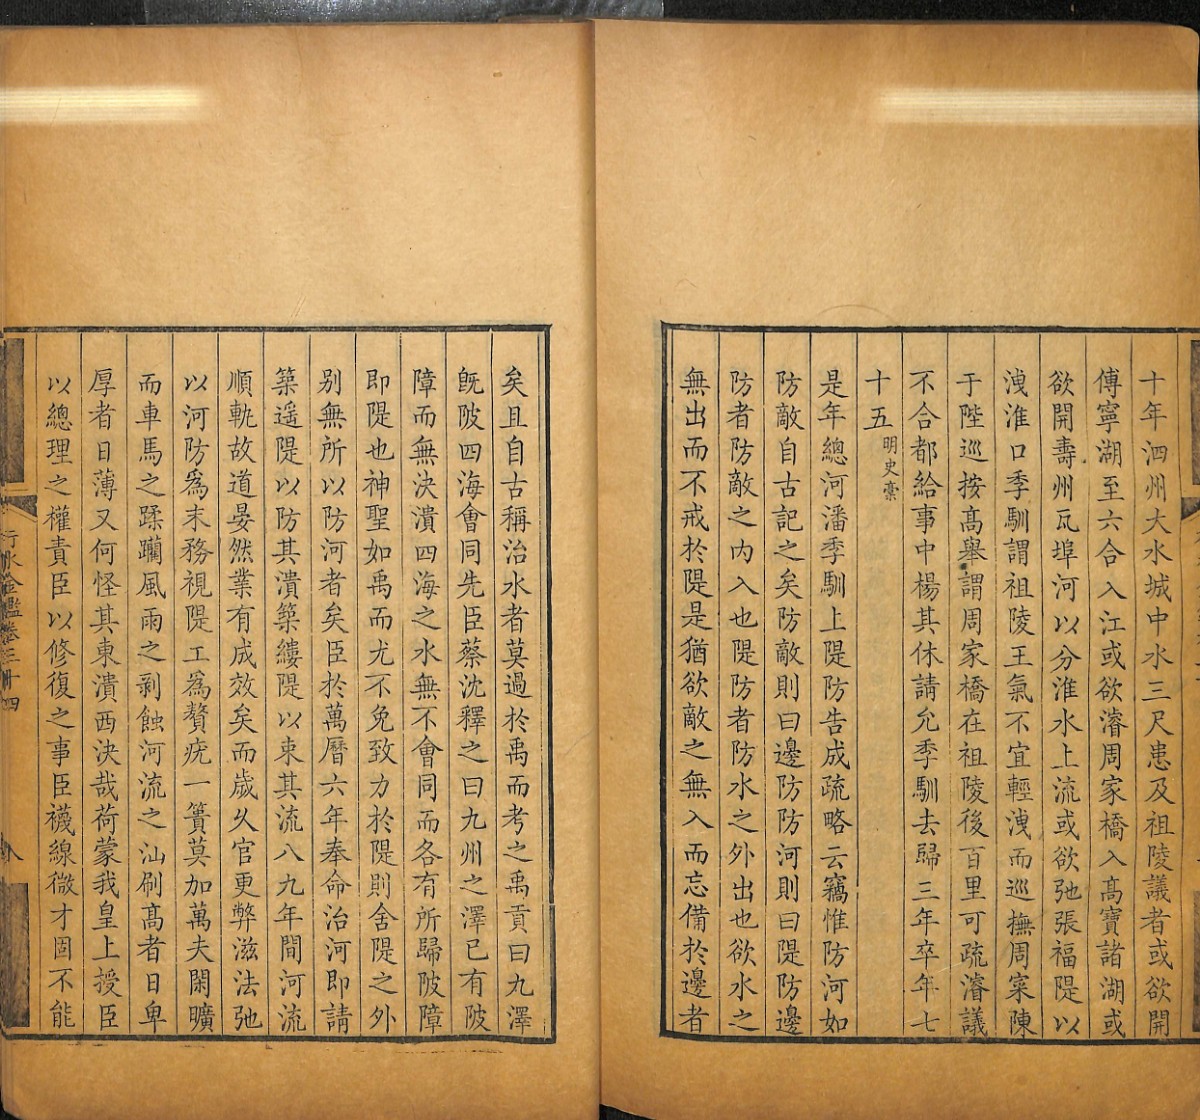 十年泗州大水城中水三尺患及祖陵議者或欲開
傅寧湖至六合入江或欲濬周家橋入髙寶諸湖或
欲開壽州瓦埠河以分淮水上流或欲弛張福隄以
洩淮口季馴謂祖陵王氣不宜輕洩而巡撫周寀陳
于陛巡按髙舉謂周家橋在祖陵後百里可疏濬議
不合都給事中楊其休請允季馴去歸三年卒年七
十五明史稾
是年總河潘季馴上隄防告成疏略云竊惟防河如
防敵自古記之矣防敵則曰邊防防河則曰隄防邊
防者防敵之内入也隄防者防水之外出也欲水之
無出而不戒於隄是猶欲敵之無入而忘備於邊者
矣且自古稱治水者莫過於禹而考之禹貢曰九澤
旣陂四海會同先臣蔡沈釋之曰九州之澤已有陂
障而無決潰四海之水無不會同而各有所歸陂障
即隄也神聖如禹而尤不免致力於隄則舍隄之外
别無所以防河者矣臣於萬曆六年奉命治河即請
築遥隄以防其潰築縷隄以束其流八九年間河流
順軌故道晏然業有成效矣而歲久官更弊滋法弛
以河防爲末務視隄工爲贅疣一簣莫加萬夫閑曠
而車馬之蹂躪風雨之剥蝕河流之汕刷髙者日卑
厚者日薄又何怪其東潰西決哉荷蒙我皇上授臣
以總理之權責臣以修復之事臣襪線微才固不能
行水金鑑卷三十四
八